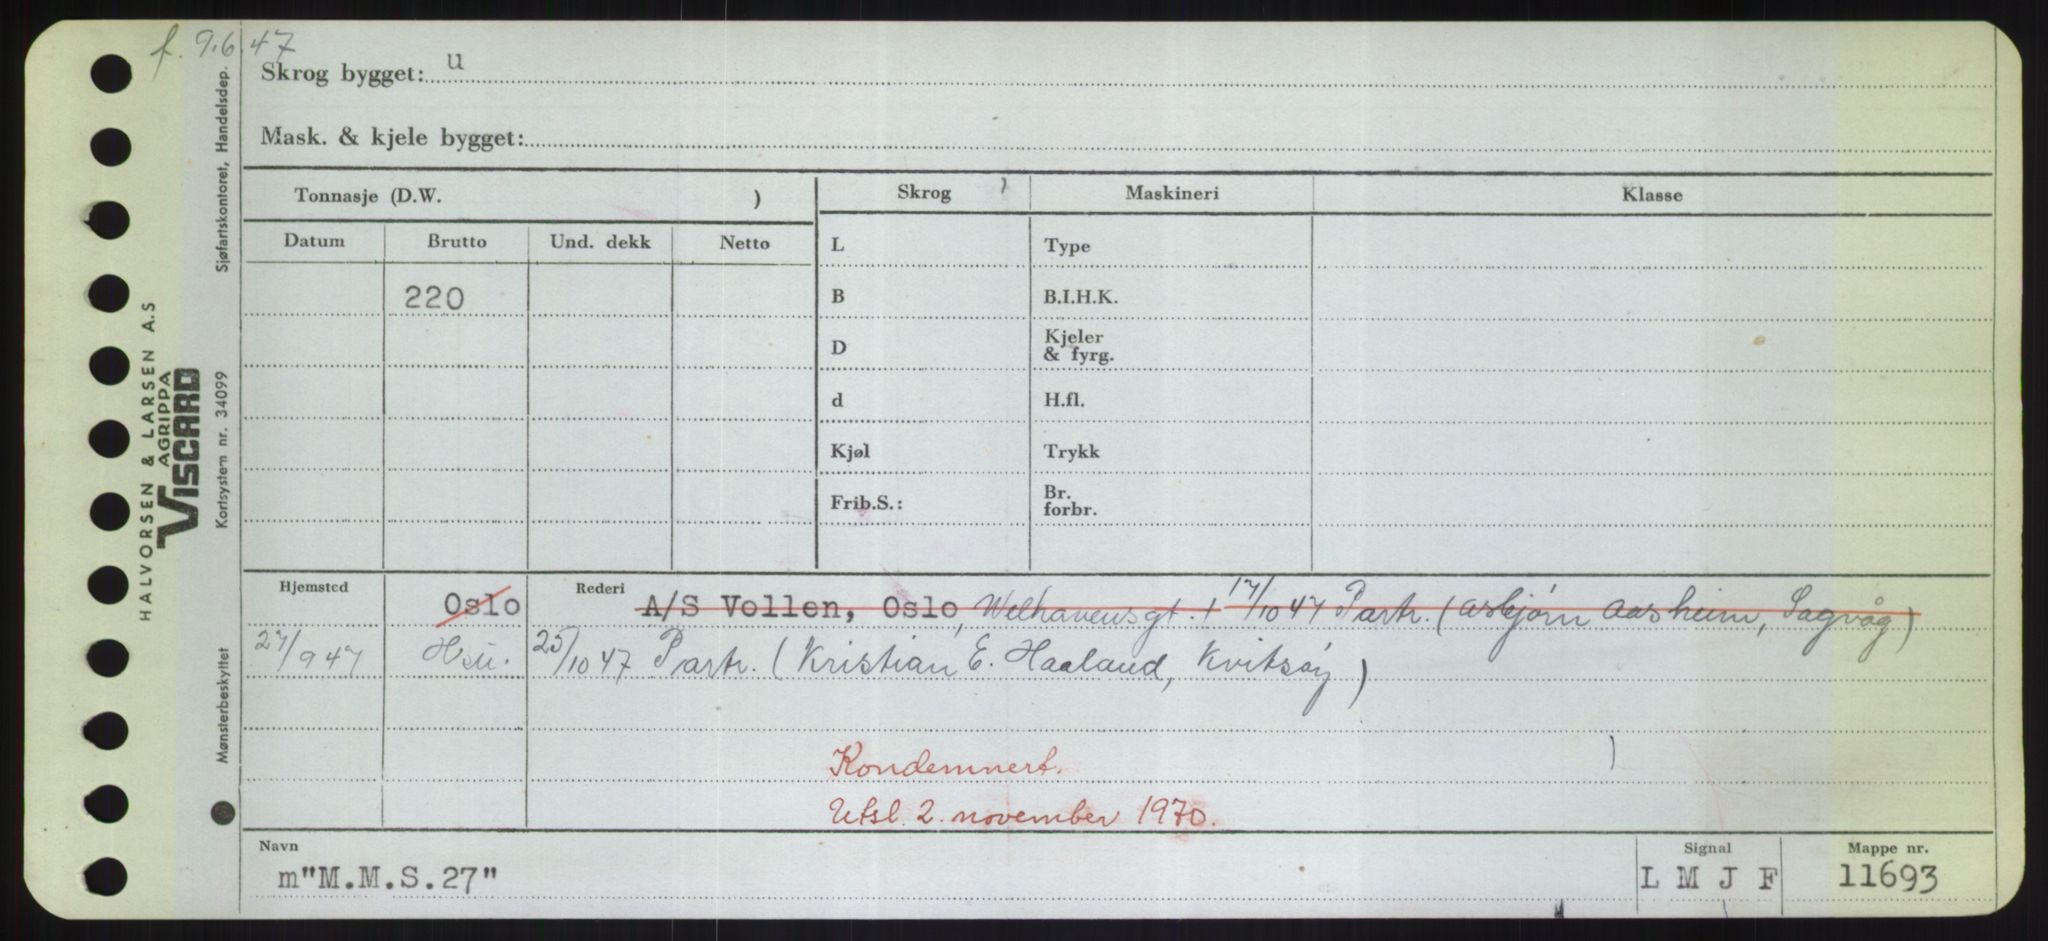 f. 9.6.47
Skrog bygget: u
Mask. & kjele bygget:
Tonnasje (D.W. )
Skrog
Maskineri
Klasse
Datum
Brutto
Und. dekk
Netto
L
Type
220
B
B.I.H.K.
D
Kjeler
& fyrg.
d
H.fl.
Kjøl
Trykk
Frib.S.:
Br.
forbr.
Hjemsted
Oslo
Rederi
A/S Vollen, Oslo, Welhavensgt. 1 17/10 47 Partr. (Asbjørn Aasheim, Sagvåg)
27/9 47
Hsu.
25/10 47 Partr. (Kristian E. Haaland, Kvitsøy)
Kondemnert.
Utsl. 2. november 1970.
Navn
m"M.M.S.27"
Signal
L M J F
Mappe nr.
11693
HALVORSEN & LARSEN A.S
AGRIPPA
VISCARD
Mønsterbeskyttet
Kortsystem nr. 34099
Sjøfartskontoret, Handelsdep.